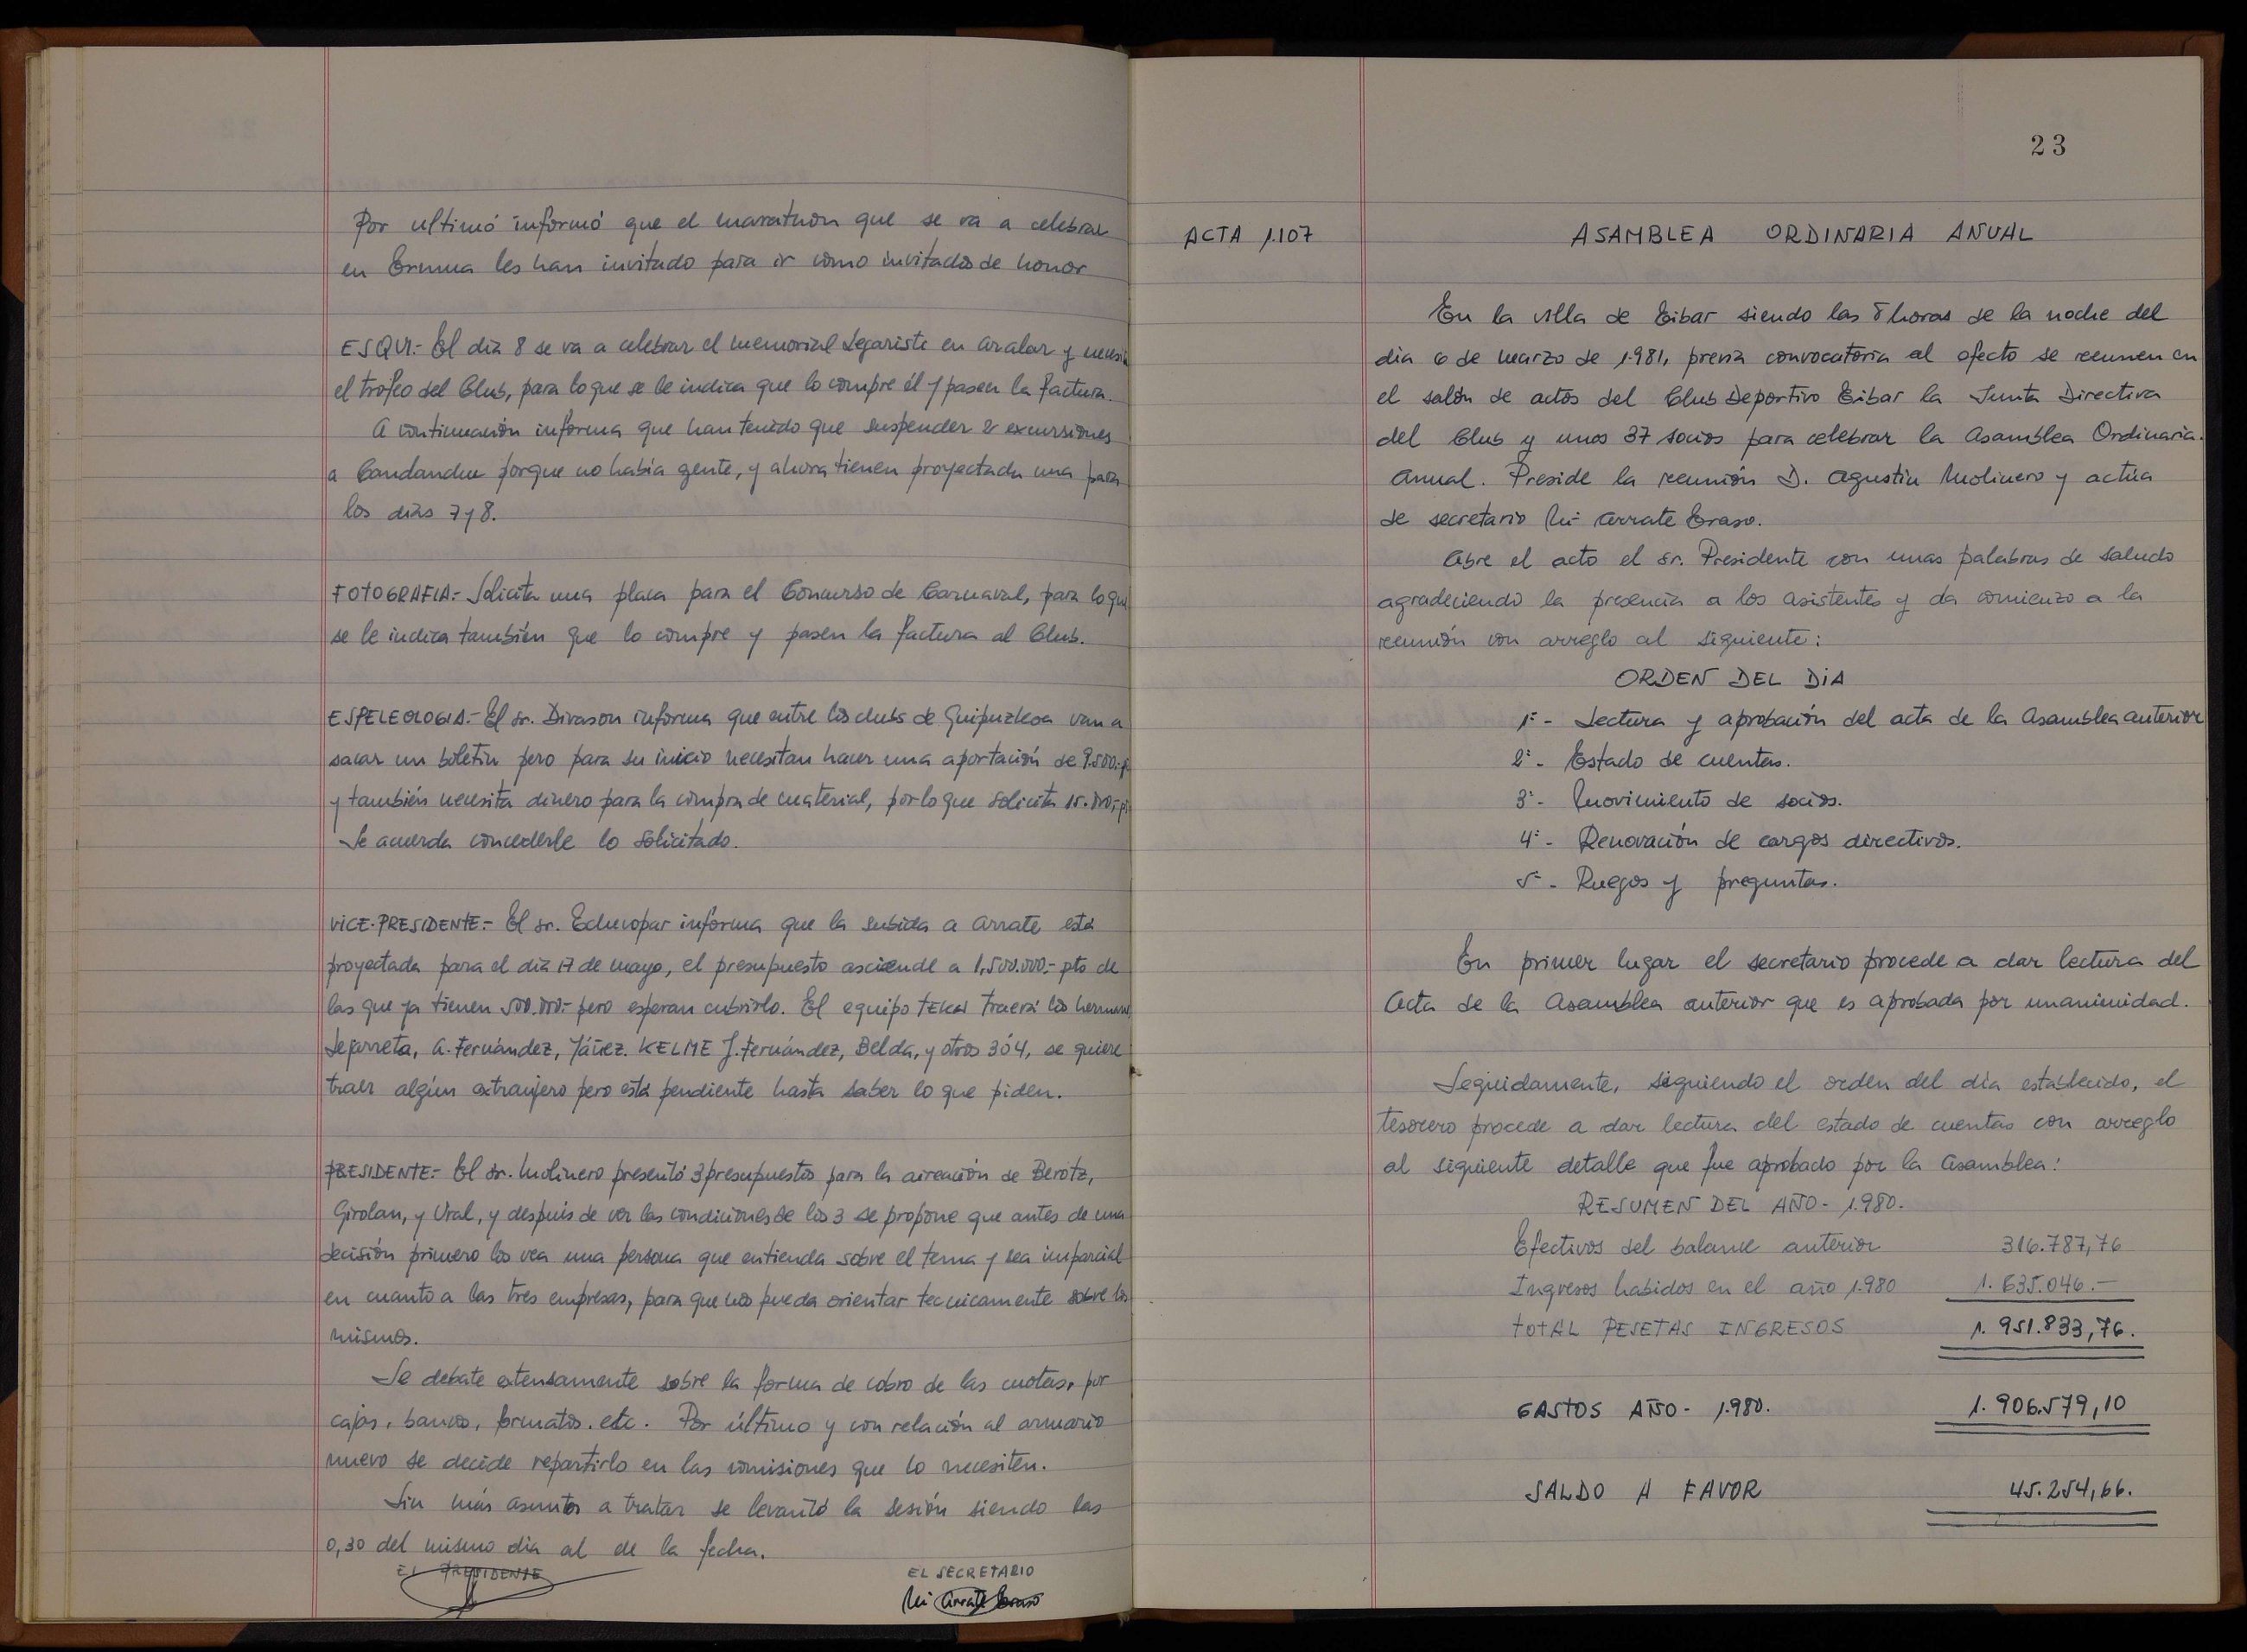 Por ultimó informó que el marathon que se va a celebrar
en Ermua les han invitado para ir como invitados de honor
ESQUI.- El dia 8 se va a celebrar el memorial Legariste en Aralar y
el trofeo del Club, para lo que se le indica que lo compre él y pasen la factura.
A continuación informa que han tenido que suspender 2 excursiones
a Candanchu porque no había gente, y ahora tienen proyectada una para
los dias 7 y 8.
FOTOGRAFIA.- Solicita una placa para el Concurso de Carnaval, para lo que
se le indica también que lo compre y pasen la factura al Club.
ESPELEOLOGIA.- El sr. Divason informa que entre los clubs de Guipuzkoa van a
sacar un boletin pero para su inicio necesitan hacer una aportación de 9.500,-p
y también necesita dinero para la compra de material, por lo que solicita 15.000,-p
Se acuerda concederle lo solicitado.
VICE-PRESIDENTE.- El sr. Echucopar informa que la subida a Arrate está
proyectada para el dia 17 de mayo, el presupuesto asciende a 1,500.000.- pts de
las que ya tienen 500.000.- pero esperan cubrirlo. El equipo TEKA traerá los herman
Lejarreta, A. Fernández, Yáñez. KELME J. Fernández, Belda, y otros 3 ó 4, se quiere
traer algún extranjero pero está pendiente hasta saber lo que piden.
PRESIDENTE.- El sr. Molinero presentó 3 presupuestos para la aireación de Berotz,
Girolan, y Ural, y después de ver las condiciones de los 3 se propone que antes de una
decisión primero los vea una persona que entienda sobre el tema y sea imparcial
en cuanto a las tres empresas, para que nos pueda orientar tecnicamente sobre los
mismos.
Se debate extensamente sobre la forma de cobro de las cuotas, por
cajas, bancos, formatos. etc. Por último y con relación al armario
nuevo se decide repartirlo en las comisiones que lo necesiten.
Sin más asuntos a tratar se levantó la sesión siendo las
0,30 del mismo dia al de la fecha.
EL PRESIDENTE
EL SECRETARIO
Mi Arrate Eraso
23
ACTA 1.107
ASAMBLEA ORDINARIA ANUAL
En la villa de Eibar siendo las 8 horas de la noche del
dia 6 de marzo de 1.981, previa convocatoria al efecto se reunen en
el salón de actos del Club Deportivo Eibar la Junta Directiva
del Club y unos 37 socios para celebrar la Asamblea Ordinaria.
Anual. Preside la reunión D. Agustin Molinero y actúa
de secretario Mi Arrate Eraso.
Abre el acto el sr. Presidente con unas palabras de saludo
agradeciendo la presencia a los asistentes y da comienzo a la
reunión con arreglo al siguiente:
ORDEN DEL DIA
1º - Lectura y aprobación del acta de la Asamblea anterior
2º - Estado de cuentas.
3º - Movimiento de socios.
4º - Renovación de cargos directivos.
5º - Ruegos y preguntas.
En primer lugar el secretario procede a dar lectura del
Acta de la Asamblea anterior que es aprobada por unanimidad.
Seguidamente, siguiendo el orden del dia establecido, el
tesorero procede a dar lectura del estado de cuentas con arreglo
al siguiente detalle que fue aprobado por la Asamblea:
RESUMEN DEL AÑO - 1.980.
Efectivos del balance anterior 316.787,76
Ingresos habidos en el año 1.980 1.635.046.-
TOTAL PESETAS INGRESOS 1.951.833,76.
GASTOS AÑO - 1.980. 1.906.579,10
SALDO A FAVOR 45.254,66.